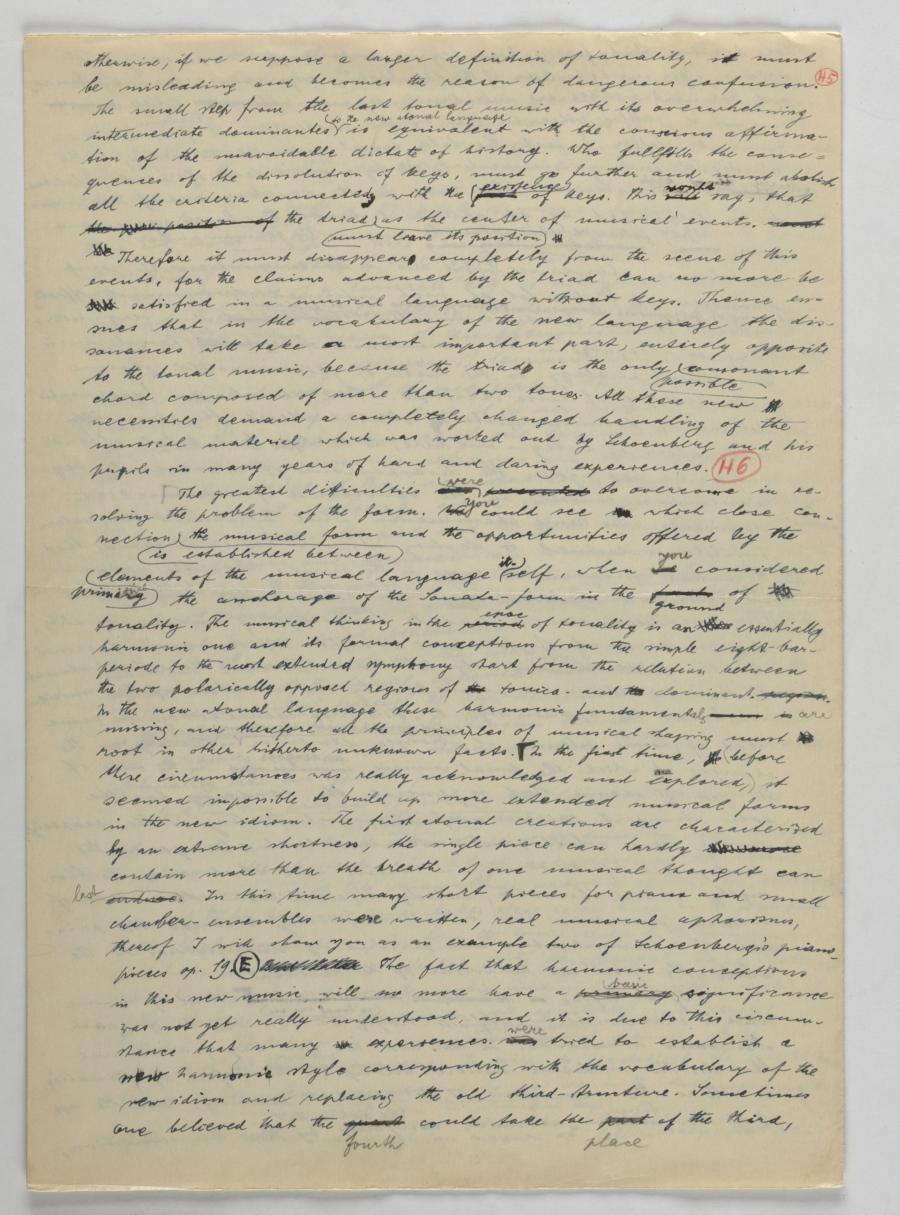 otherwise, if we suppose a larger definition of tonality, it must
be misleading and becomes the reason of dangerous confusion. H5
The small step from the last tonal music with its overwhelming
to the new atonal language
intermediate dominantes is equivalent with the conscious affirma-
tion of the unavoidable dictate of history. Who fullfills the conse=
quences of the dissolution of keys, must go further and must abolish
existence would
all the criteria connected with the of keys. This say, that
the position of the triad as the center of musical events.
must leave its position
Therefore it must disappear completely from the scene of this
events, for the claims advanced by the triad can no more be
satisfied in a musical language without keys. Thence en-
sues that in the vocabulary of the new language the dis-
sonances will take a most important part, entirely opposite
to the tonal music, because the triad is the only consonant
possible
chord composed of more than two tones. All these new
necessities demand a completely changed handling of the
musical material which was worked out by Schoenberg and his
pupils in many years of hard and daring experiences. H6
were
The greatest difficulties presented to overcome in re-
you
solving the problem of the form. could see which close con-
nection the musical form and the opportunities offered by the
is established between
it- you
elements of the musical language self, when considered
primary the anchorage of the Sonata-form in the of
ground
once
tonality. The musical thinking in the period of tonality is an essentially
harmonic one and its formal conceptions from the simple eight-bar-
periode to the most extended symphony start from the relation between
the two polarically opposed regions of the tonica- and the dominant.
In the new atonal language these harmonic fundamentals are
missing, and therefore all the principles of musical shaping must
root in other hitherto unknown facts. In the first time, before
these circumstances was really acknowledged and explored, it
seemed impossible to build up more extended musical forms
in the new idiom. The first atonal creations are characterized
by an extreme shortness, the single piece can hardly
contain more than the breath of one musical thought can
last endure. In this time many short pieces for piano and small
chamber-ensembles were written, real musical aphorisms,
thereof I will show you as an example two of Schoenberg's piano-
pieces op. 19. E The fact that harmonic conceptions
basic
in this new music will no more have a primary significance
was not yet really understood, and it is due to this circum-
were
stance that many experiences was tried to establish a
new harmonic style corresponding with the vocabulary of the
new idiom and replacing the old third-structure. Sometimes
one believed that the quart could take the part of the third,
fourth place